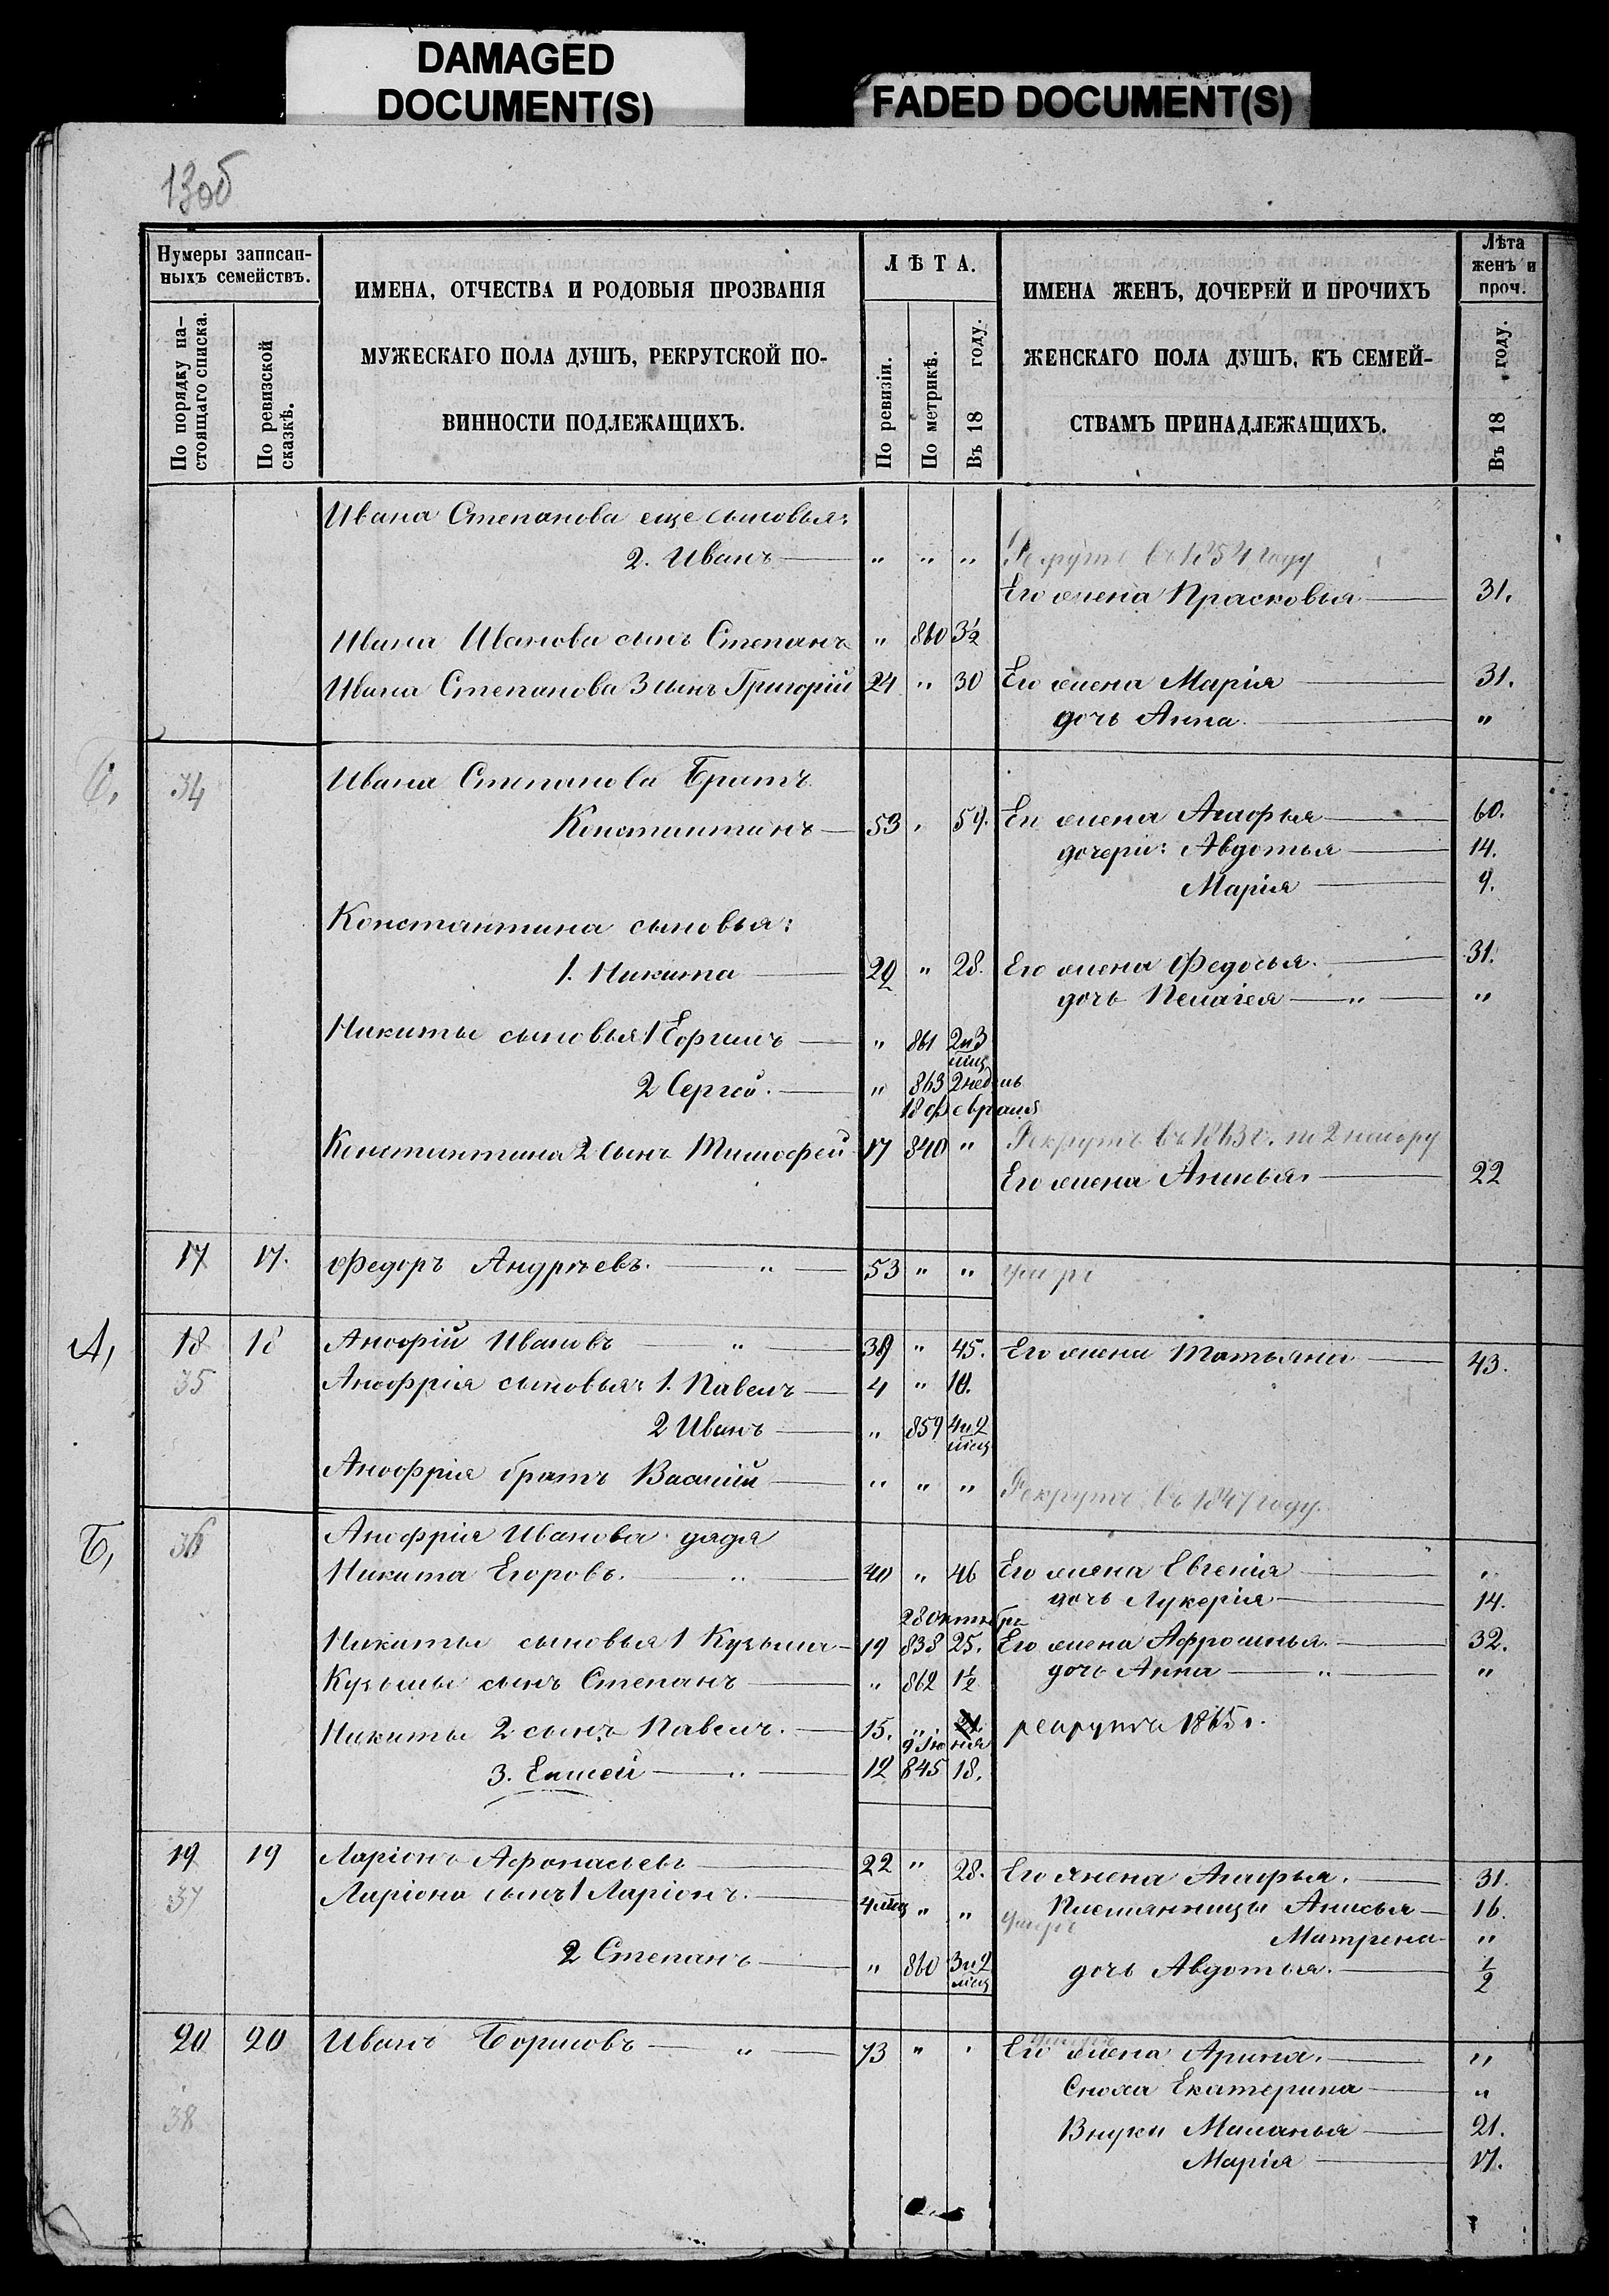 DAMAGED
DOCUMENT(S)
FADED DOCUMENT(S)
13об
Нумеры записан-
ныхъ семействъ.
По порядку на-
стоящаго списка.
По ревизской
сказкѣ.
ИМЕНА, ОТЧЕСТВА И РОДОВЫЯ ПРОЗВАНІЯ
МУЖЕСКАГО ПОЛА ДУШЪ, РЕКРУТСКОЙ ПО-
ВИННОСТИ ПОДЛЕЖАЩИХЪ.
ЛѢТА.
По ревизіи.
По метрикѣ.
Въ 18 году.
ИМЕНА ЖЕНЪ, ДОЧЕРЕЙ И ПРОЧИХЪ
ЖЕНСКАГО ПОЛА ДУШЪ, КЪ СЕМЕЙ-
СТВАМЪ ПРИНАДЛЕЖАЩИХЪ.
Лѣта
женъ и
проч.
Въ 18 году.
Ивана Степанова еще сыновья:
2. Иванъ — " " " Рекрутъ въ 1854 году
Его жена Прасковья — 31.
Ивана Иванова сынъ Степанъ " 860 3½
Ивана Степанова 3 сынъ Григорій 24 " 30 Его жена Марія — 31.
дочь Анна — "
34 Ивана Степанова Братъ
Константинъ — 53 " 59. Его жена Агафья — 60.
дочери: Авдотья — 14.
Марія — 9.
Константина сыновья:
1. Никита — 22 " 28. Его жена Федосья. — 31.
дочь Пелагея — " — "
Никиты сыновья 1 — " 861 2 и 3
мѣц
2 Сергей. — " 863 2 недѣль
18 февраля
Константина 2 сынъ Тимофей 17 840 " Рекрутъ въ 1863 г. по 2 набору
Его жена Анисья. — 22
17 17. Федоръ Андреевъ. — " — 53 " " умре
А, 18 18 Анофрій Ивановъ — " — 39 " 45. Его жена Татьяна — 43.
35 Анофрія сыновья: 1. Павелъ — 4 " 10.
2 Иванъ — " 859 4 и 2
мѣц
Анофрія братъ Василій — " " " Рекрутъ въ 1847 году.
Б, 36 Анофрія Иванова дядя
Никита Егоровъ. — " — 40 " 46 Его жена Евгенія — "
дочь Лукерія — 14.
28 октября
Никиты сыновья 1 Кузьма — 19 838 25. Его жена Афросинья. — 32.
Кузьмы сынъ Степанъ — " 862 1½ дочь Анна — " — "
Никиты 2 сынъ Павелъ. — 15. " 21. рекрутъ 1865 г.
9 Іюня
3. Елисей — " — 12 845 18.
19 19 Ларіонъ Афонасьевъ — 22 " 28. Его жена Агафья. — 31.
37 Ларіона сынъ 1 Ларіонъ. — 4 мѣц " " умре Племянницы Анисья — 16.
Матрена — "
2 Степанъ — " 860 3 и 2
мѣц
дочь Авдотья. — ½
20 20 Иванъ Борисовъ — " — 73 " " Его жена Арина. — "
38 Сноха Екатерина — "
Внуки Маланья — 21.
Марія — 17.